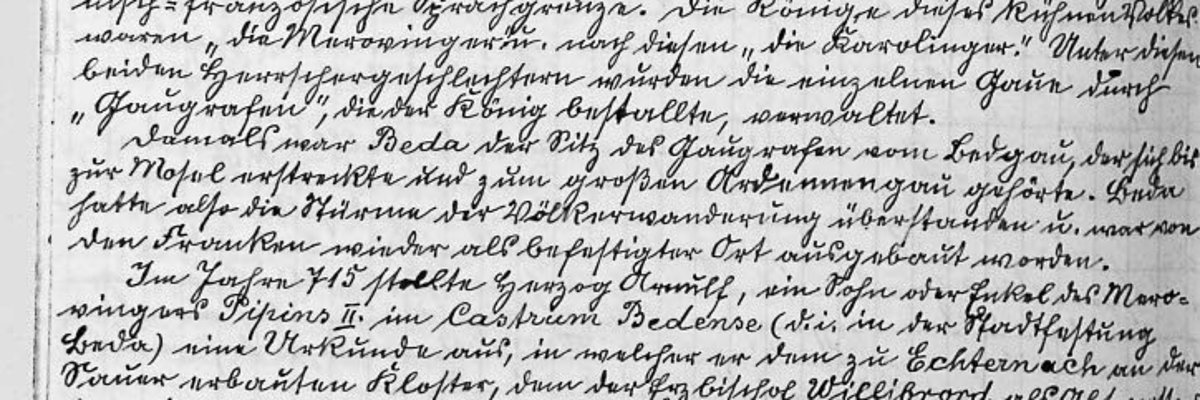 nisch=französische Sprachgrenze. Die Könige dieses kühnen Volkes
waren „die Merovinger" u. nach diesen „die Karolinger." Unter diesen
beiden Herrschergeschlechtern wurden die einzelnen Gaue durch
„Gaugrafen", die der König bestallte, verwaltet.
Damals war Beda der Sitz des Gaugrafen vom Bedgau, der sich bis
zur Mosel erstreckte und zum großen Ardennengau gehörte. Beda
hatte also die Stürme der Völkerwanderung überstanden u. war von
den Franken wieder als befestigter Ort ausgebaut worden.
Im Jahre 715 stellte Herzog Arnulf, ein Sohn oder Enkel des Mero-
vingers Pipins II. im Castrum Bedense (d.i. in der Stadtfestung
Beda) eine Urkunde aus, in welcher er dem zu Echternach an der
Sauer erbauten Kloster, dem der Erzbischof Willibrord als Abt